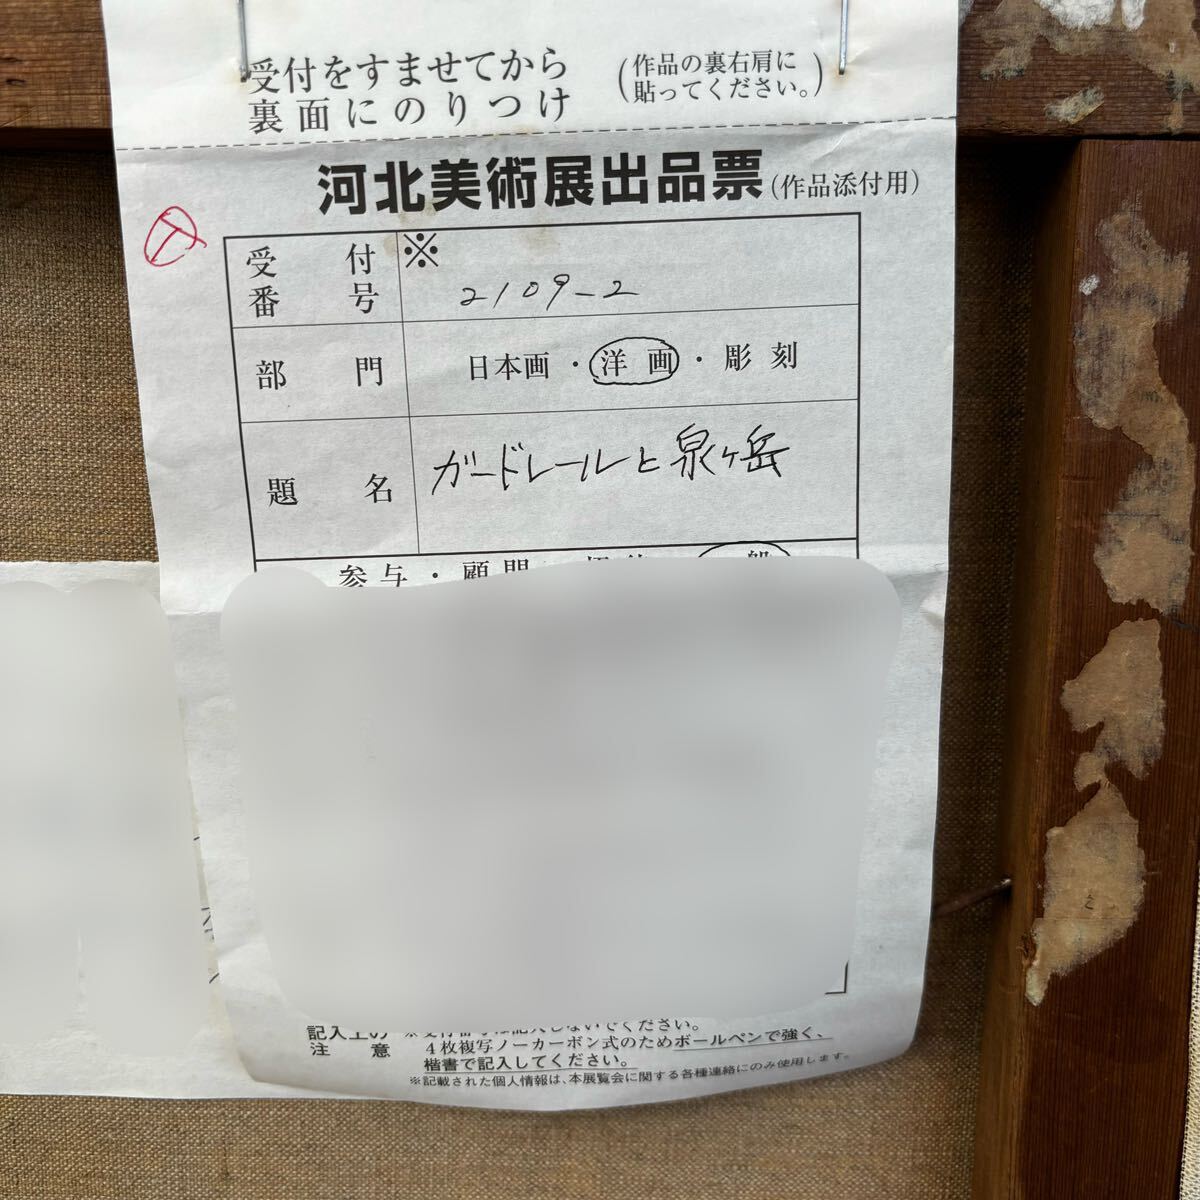 受付をすませてから
裏面にのりつけ
(作品の裏右肩に
貼ってください。)
河北美術展出品票(作品添付用)
受付番号 ※ 2109-2
部門 日本画・洋画・彫刻
題名 ガードレールと泉ヶ岳
参与・顧問
記入上の注意
4枚複写ノーカーボン式のためボールペンで強く、
楷書で記入してください。
※記載された個人情報は、本展覧会に関する各種連絡にのみ使用します。